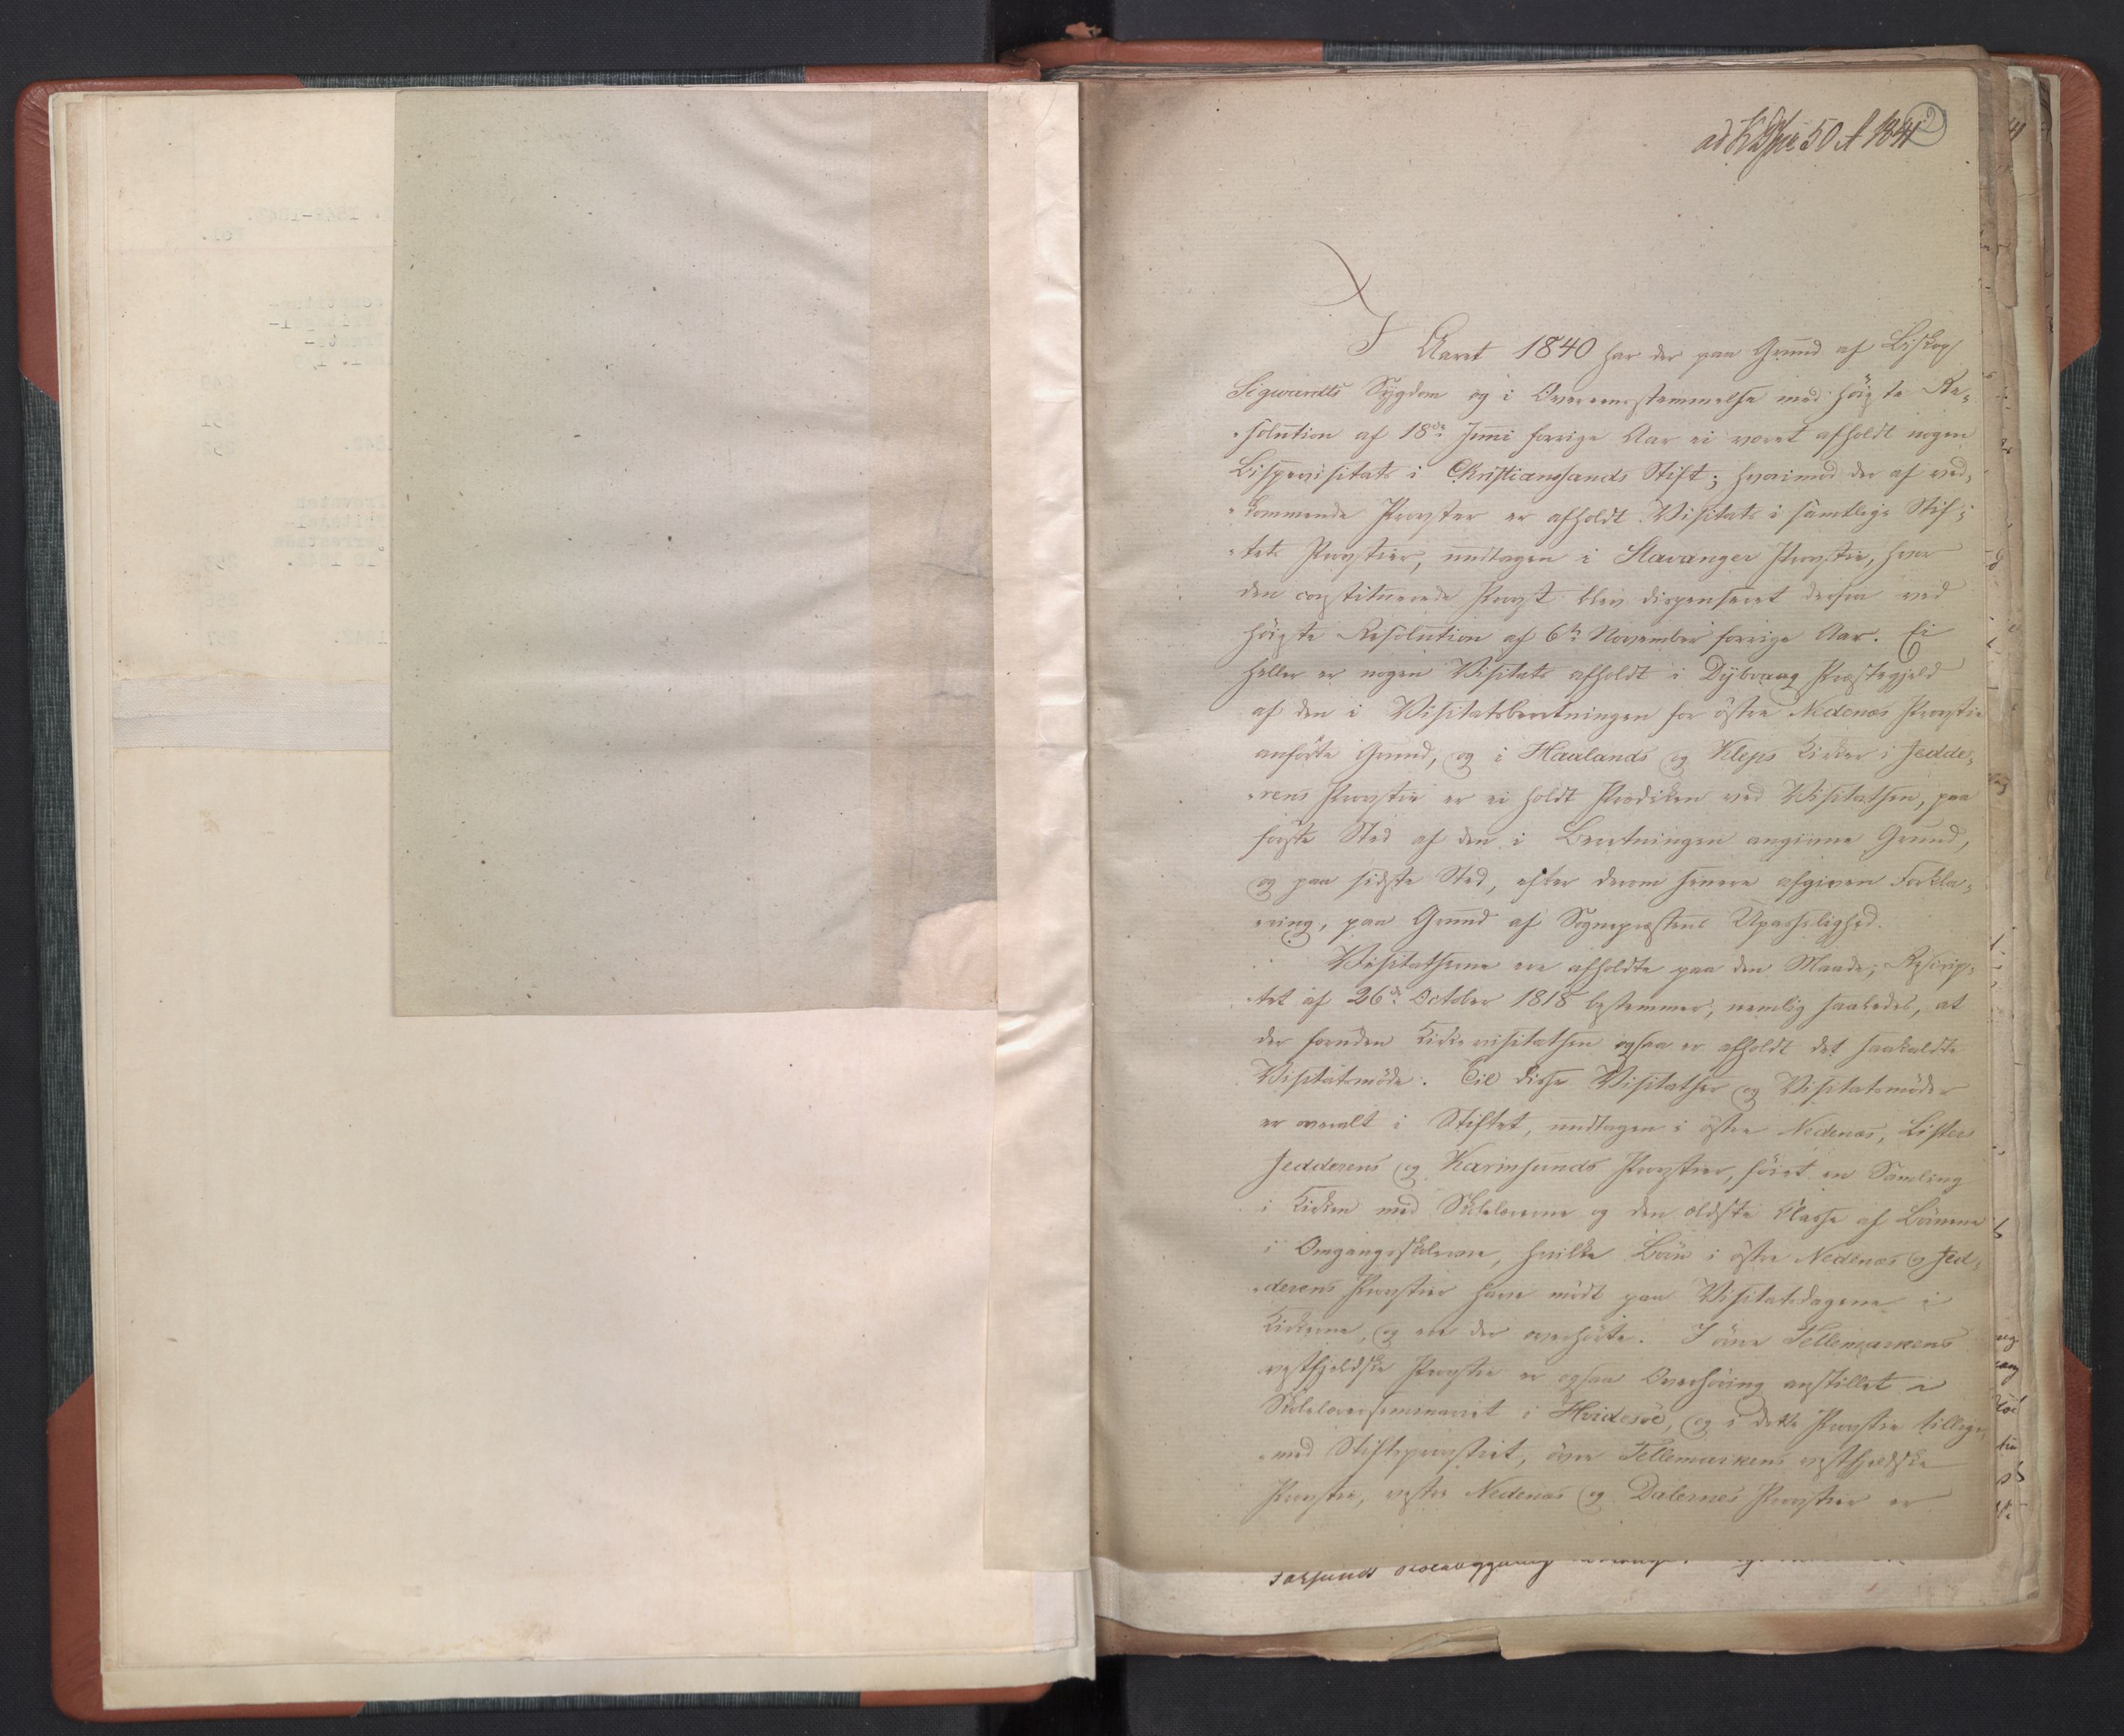 2
I Aaret 1840 har der paa Grund af Biskop
Sigwardts Sygdom og i Overeensstemmelse med høiste Re-
solution af 18de Juni forrige Aar ei været afholdt nogen
Bispevisitats i Christianssands Stift; hvorimod der af ved-
kommende Provster er afholdt Visitats i samtlige Stif-
tets Provstier, undtagen i Stavanger Provstie, hvor
den constituerede Provst blev dispenseret derfra ved
høiste Resolution af 6te November forrige Aar. Ei
heller er nogen Visitats afholdt i Dybvaag Præstegjeld
af den i Visitatsberetningen for østre Nedenæs Provstie
anførte Grund, og i Haalands og Kleps Kirker i Jedde-
rens Provstie er ei holdt Prædiken ved Visitatsen, paa
første Sted af den i Beretningen angivne Grund,
og paa sidste Sted, efter derom senere afgiven Forkla-
ring, paa Grund af Sognepræstens Upasselighed.
Visitatserne ere afholdte paa den Maade, Rescrip-
tet af 26de October 1818 bestemmer, nemlig saaledes, at
der foruden Kirkevisitatsen ogsaa er afholdt det saakaldte
Visitatsmøde. Til disse Visitatser og Visitatsmøder
er overalt i Stiftet, undtagen i østre Nedenæs, Listers
Jedderens og Karmsunds Provstier, føiet en Samling
i Kirken med Skolelærerne og den ældste Classe af Børnene
i Omgangsskolerne, hvilke Børn i østre Nedenæs og Jed-
derens Provstier have mødt paa Visitatsdagene i
Kirkerne, og ere der overhørte. I øvre Tellemarkens
vestfjeldske Provstie er ogsaa Overhøring anstillet i
Skolelærerseminariet i Hvidesøe, og i dette Provstie tillige-
med Stiftsprovstiet, øvre Tellemarkens østfjeldske
Provstie, vestre Nedenæs og Dalernes Provstier er